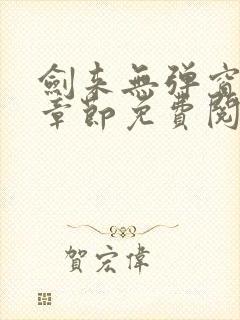 劍來無彈窗
章節免費閱
賀宏偉